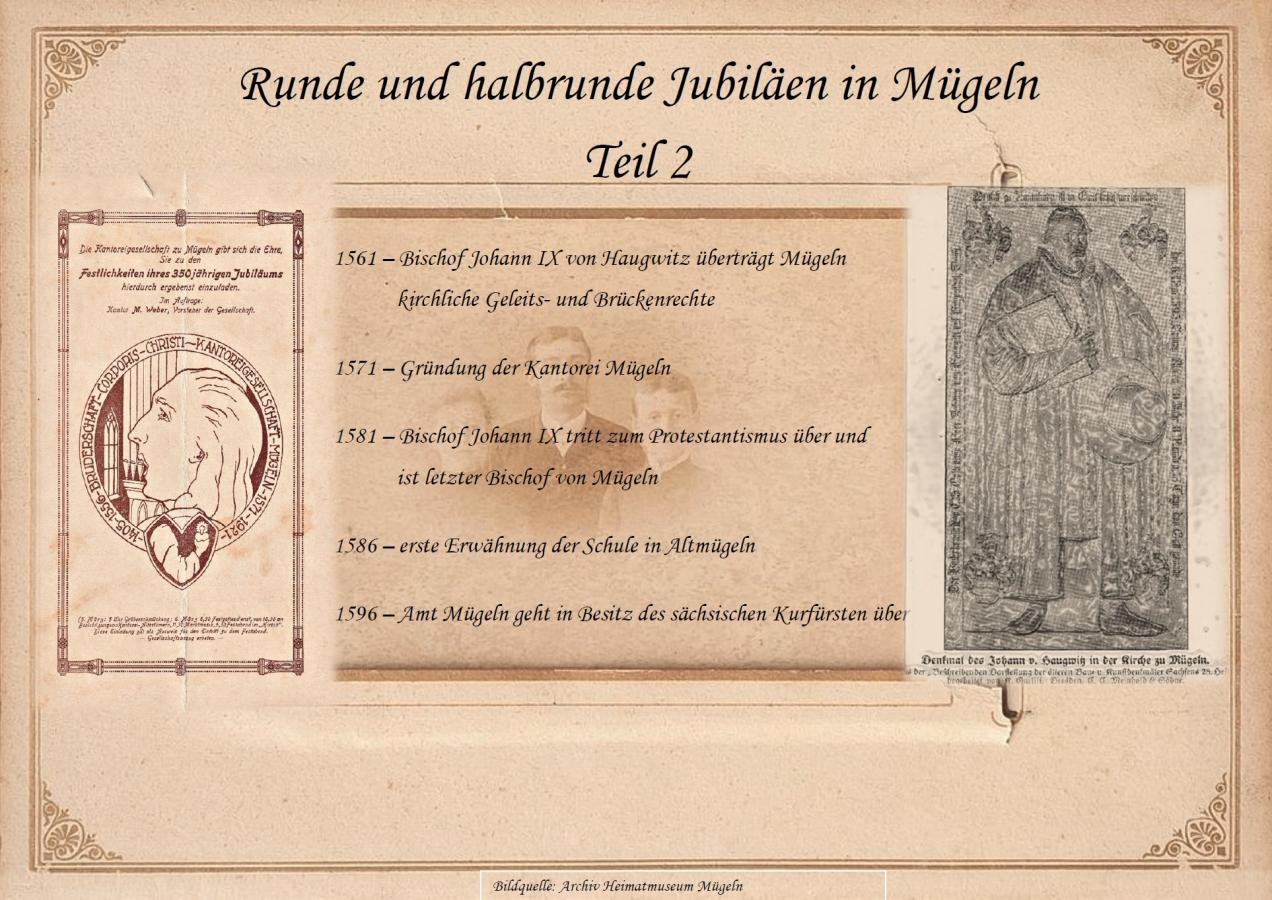 Runde und halbrunde Jubiläen in Mügeln
Teil 2
Die Kantoreigesellschaft zu Mügeln gibt sich die Ehre,
Sie zu den
Festlichkeiten ihres 350jährigen Jubiläums
hierdurch ergebenst einzuladen.
Im Auftrage:
Kantor M. Weber, Vorsteher der Gesellschaft.
1405-1556-BRUDERSCHAFT-CORPORIS-CHRISTI-KANTOREIGESELLSCHAFT-MÜGELN-1571-1921-
1561 – Bischof Johann IX von Haugwitz überträgt Mügeln
kirchliche Geleits- und Brückenrechte
1571 – Gründung der Kantorei Mügeln
1581 – Bischof Johann IX tritt zum Protestantismus über und
ist letzter Bischof von Mügeln
1586 – erste Erwähnung der Schule in Altmügeln
1596 – Amt Mügeln geht in Besitz des sächsischen Kurfürsten über
Denkmal des Johann v. Haugwitz in der Kirche zu Mügeln.
Bildquelle: Archiv Heimatmuseum Mügeln